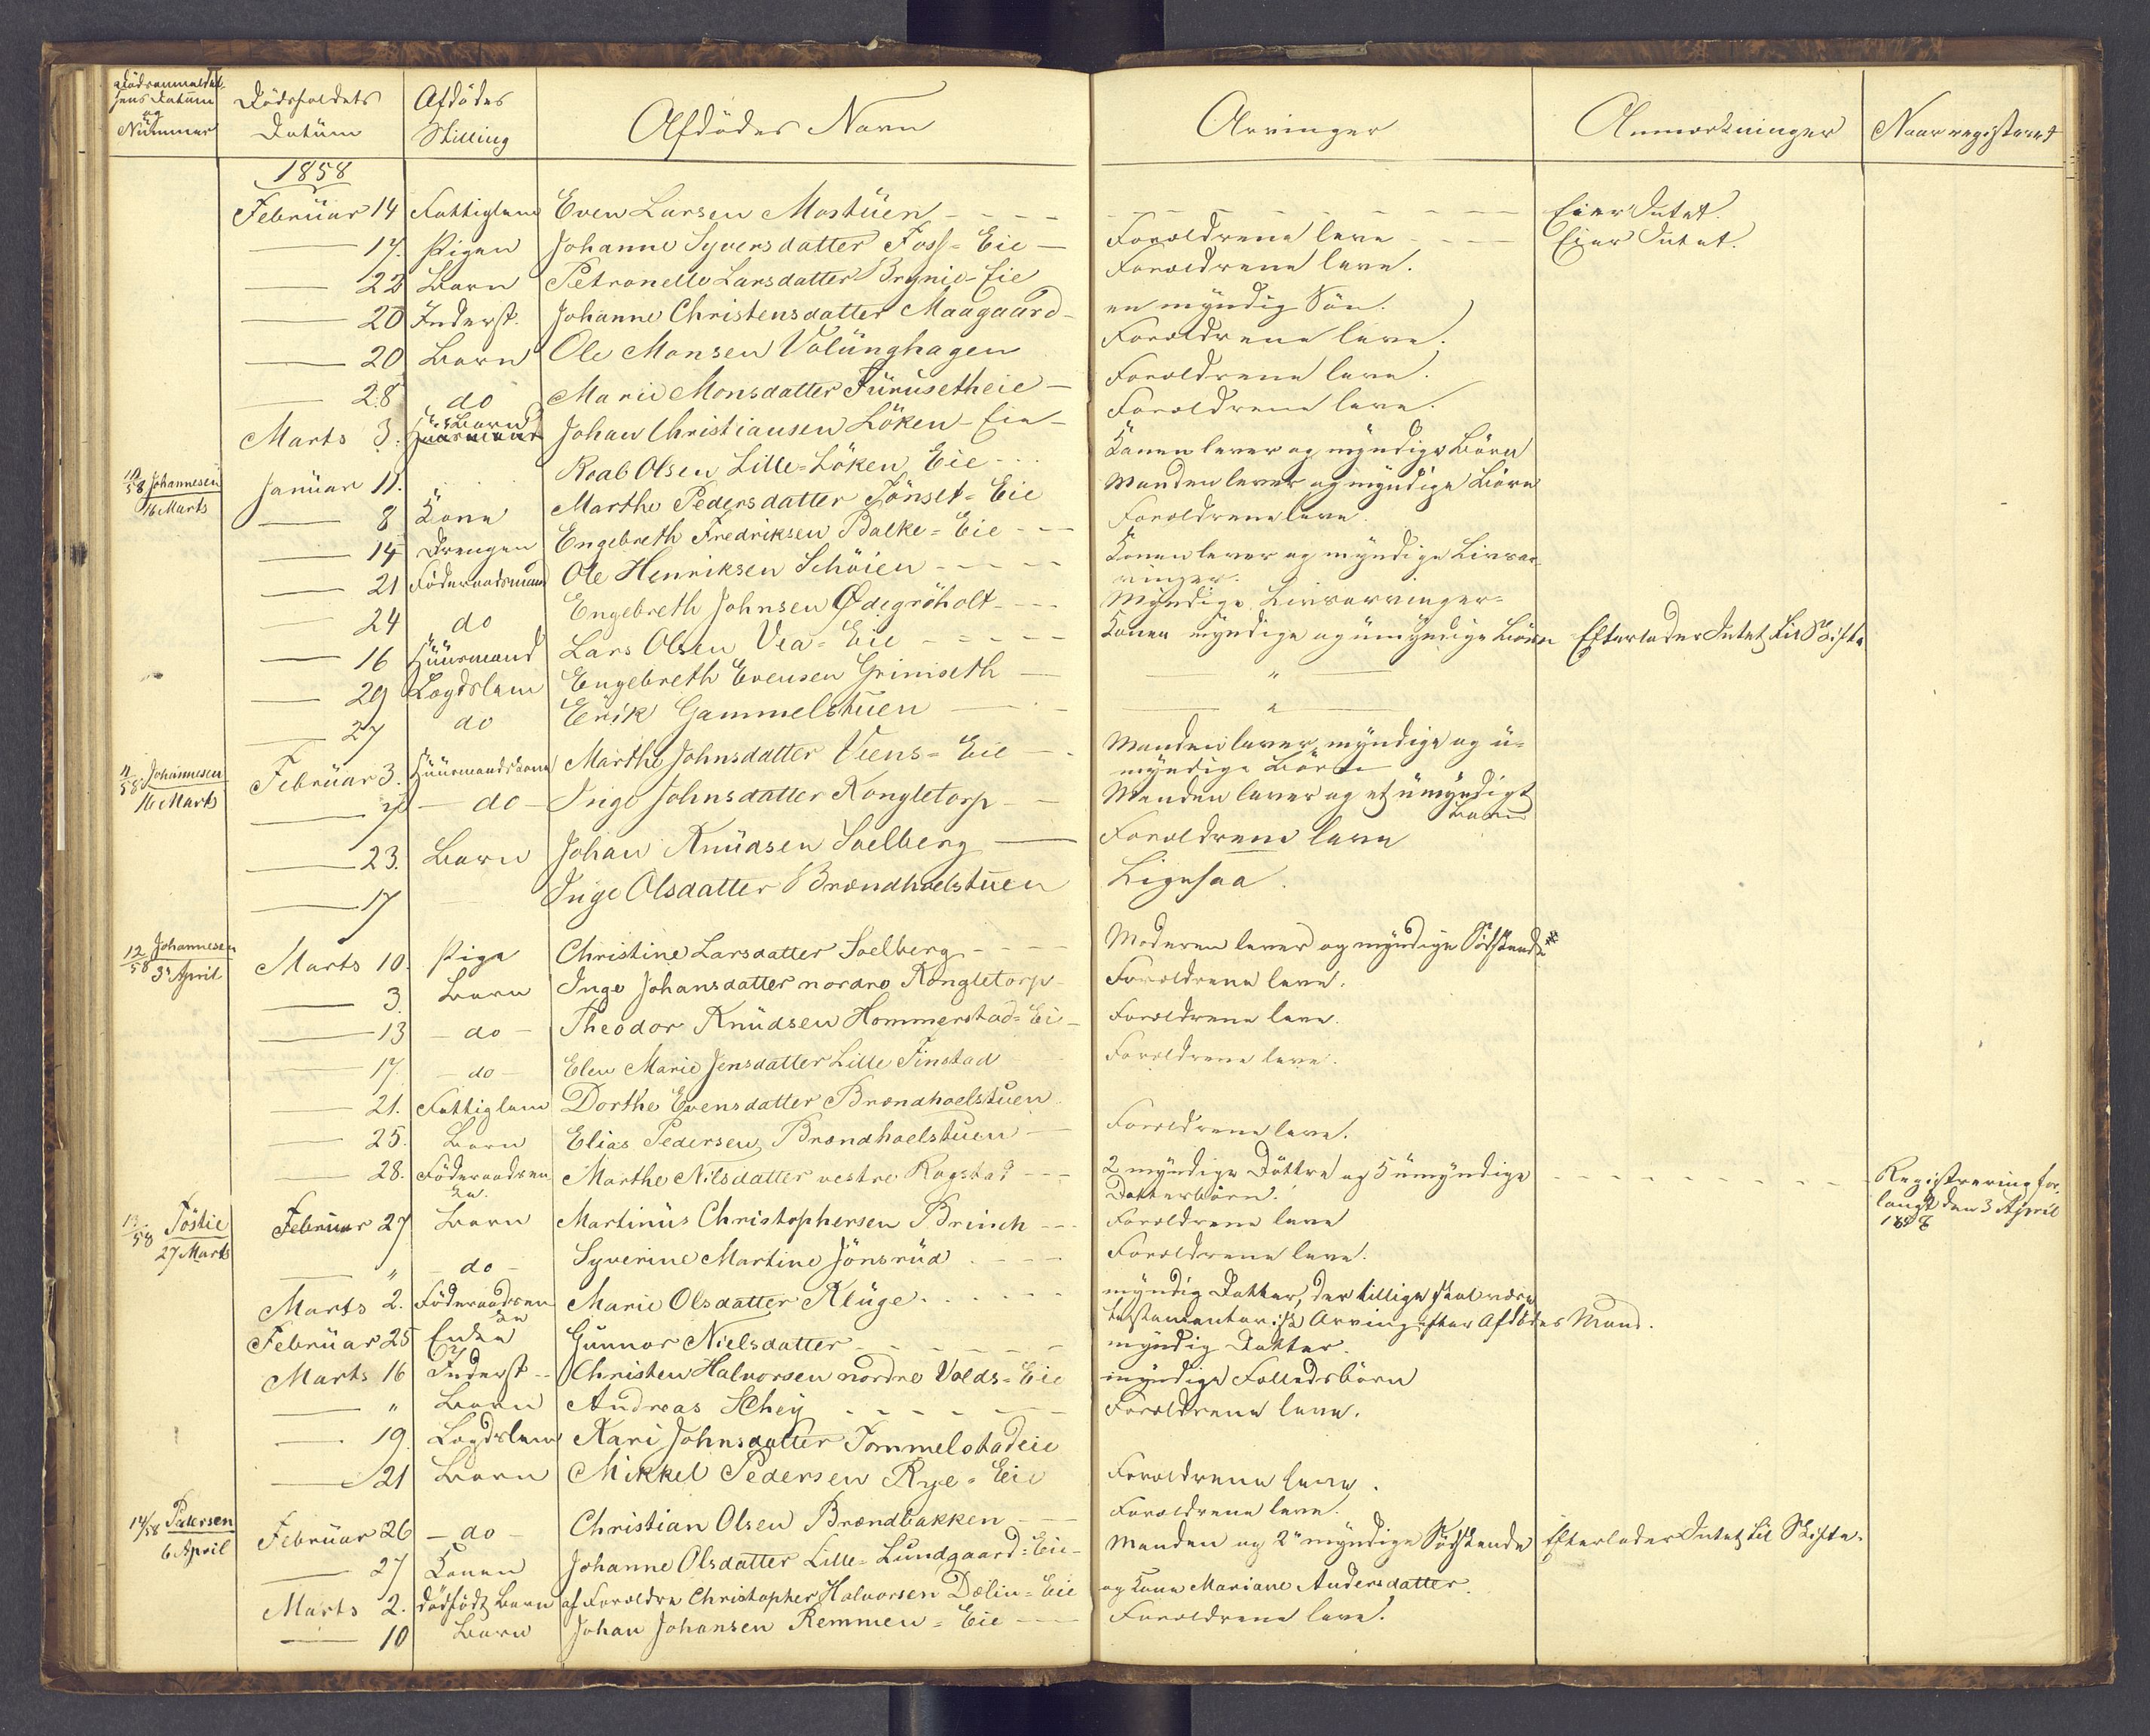 Dödsanmeldel- Dödsfaldets Afdödes Afdödes Navn Arvinger Anmærkninger Naar registeret
sens Datum og Nummer Datum Stilling
1858
Februar 14 Fattiglem Even Larsen Mostuen - - - - Eier Intet.
17. Pigen Johanne Syversdatter Foss-Eie - Forældrene leve - - - Eier Intet.
22 Barn Petronelle Larsdatter Brynie-Eie Forældrene leve.
20 Inderst. Johanne Christensdatter Maagaard- en myndig Sön.
20 Barn Ole Monsen Volünghagen Forældrene leve.
28 do Marie Monsdatter Fürüsetheie - Forældrene leve.
Marts 3. Barn Johan Christiansen Löken-Eie- Forældrene leve.
10/58 Johannesen 16 Marts Januar 11. Roab Olsen Lille-Löken Eie - - Konen lever og myndige Börn
8 Kone Marthe Pedersdatter Jönset-Eie Manden lever og myndige Börn
14 Drengen Engebreth Fredriksen Balke-Eie - - - Forældrene leve.
21 Föderaadsmand Ole Henriksen Schöien - - - - Konen lever og myndige Livsar-
vinger.
24 do Engebreth Johnsen Ødegröholt - - - Myndige Livsarvinger-
16 Huusmand Lars Olsen Vea-Eie - - - - - Konen myndige og umyndige Börn Efterlader Intet til Skifte
29 Lægdslem Engebreth Evensen Grimseth - "
27 do Erik Gammelstuen - - "
11/58 Johannesen 16 Marts Februar 3. Huusmandskone Marthe Johnsdatter Viens-Eie - - Manden lever, myndige og u-
myndige Börn
7 - do - Inge Johnsdatter Kongletorp - - Manden lever og et umyndigt
Barn
23. Barn Johan Knudsen Soelberg - Forældrene leve
17 Inge Olsdatter Brændhoelstuen Ligesaa.
12/58 Johannesen 3 April Marts 10. Pige Christine Larsdatter Soelberg - - - - Moderen lever og myndige Södskende
3. Barn Inge Johansdatter nordre Kongletorp - Forældrene leve.
13 - do - Theodor Knudsen Hommerstad-Ei - Forældrene leve.
17 - do - Elen Marie Jensdatter Lille Finstad Forældrene leve.
21. Fattiglem Dorthe Evensdatter Brændhoelstuen
25. Barn Elias Pedersen Brændhoelstuen - Forældrene leve.
28. Föderaadsen- Marthe Nilsdatter vestre Rogstad - - - 2 myndige Döttre og 5 umyndige - - - - - - - - - Registrering for-
ke. Datterbörn. langt den 3 April
1858
13/58 Töstie 27 Marts Februar 27 Barn Martinus Christophersen Brinch - - - Forældrene leve
" - do - Syverine Martine Jönsrüd - - - Forældrene leve.
Marts 2. Föderaadsen- Marie Olsdatter Klüge - - - - - myndig Datter, der tillige skal være
ke testamentarisk Arving efter Afdödes Mand.
Februar 25 Enke Gunnor Nielsdatter - - - - - - myndig Datter.
Marts 16 Inderst - - Christen Halvorsen nordre Volds-Eie myndige Fælledsbörn
" Barn Andreas Schey - - - - - - Forældrene leve.
19. Lægdslem Kari Johnsdatter Tommelstadeie
21 Barn Mikkel Pedersen Rye-Eie Forældrene leve.
14/58 Petersen 6 April Februar 26 - do - Christian Olsen Brændbakken - - Forældrene leve.
27 Konen Johanne Olsdatter Lille-Lundgaard-Eie- Manden og 2 myndige Södskende Efterlader Intet til Skifte.
Marts 2. dödfödt Barn af Forældre Christopher Halvorsen Dælin-Eie og Kone Mariane Andersdatter.
10 Barn Johan Johansen Remmen-Eie - - Forældrene leve.